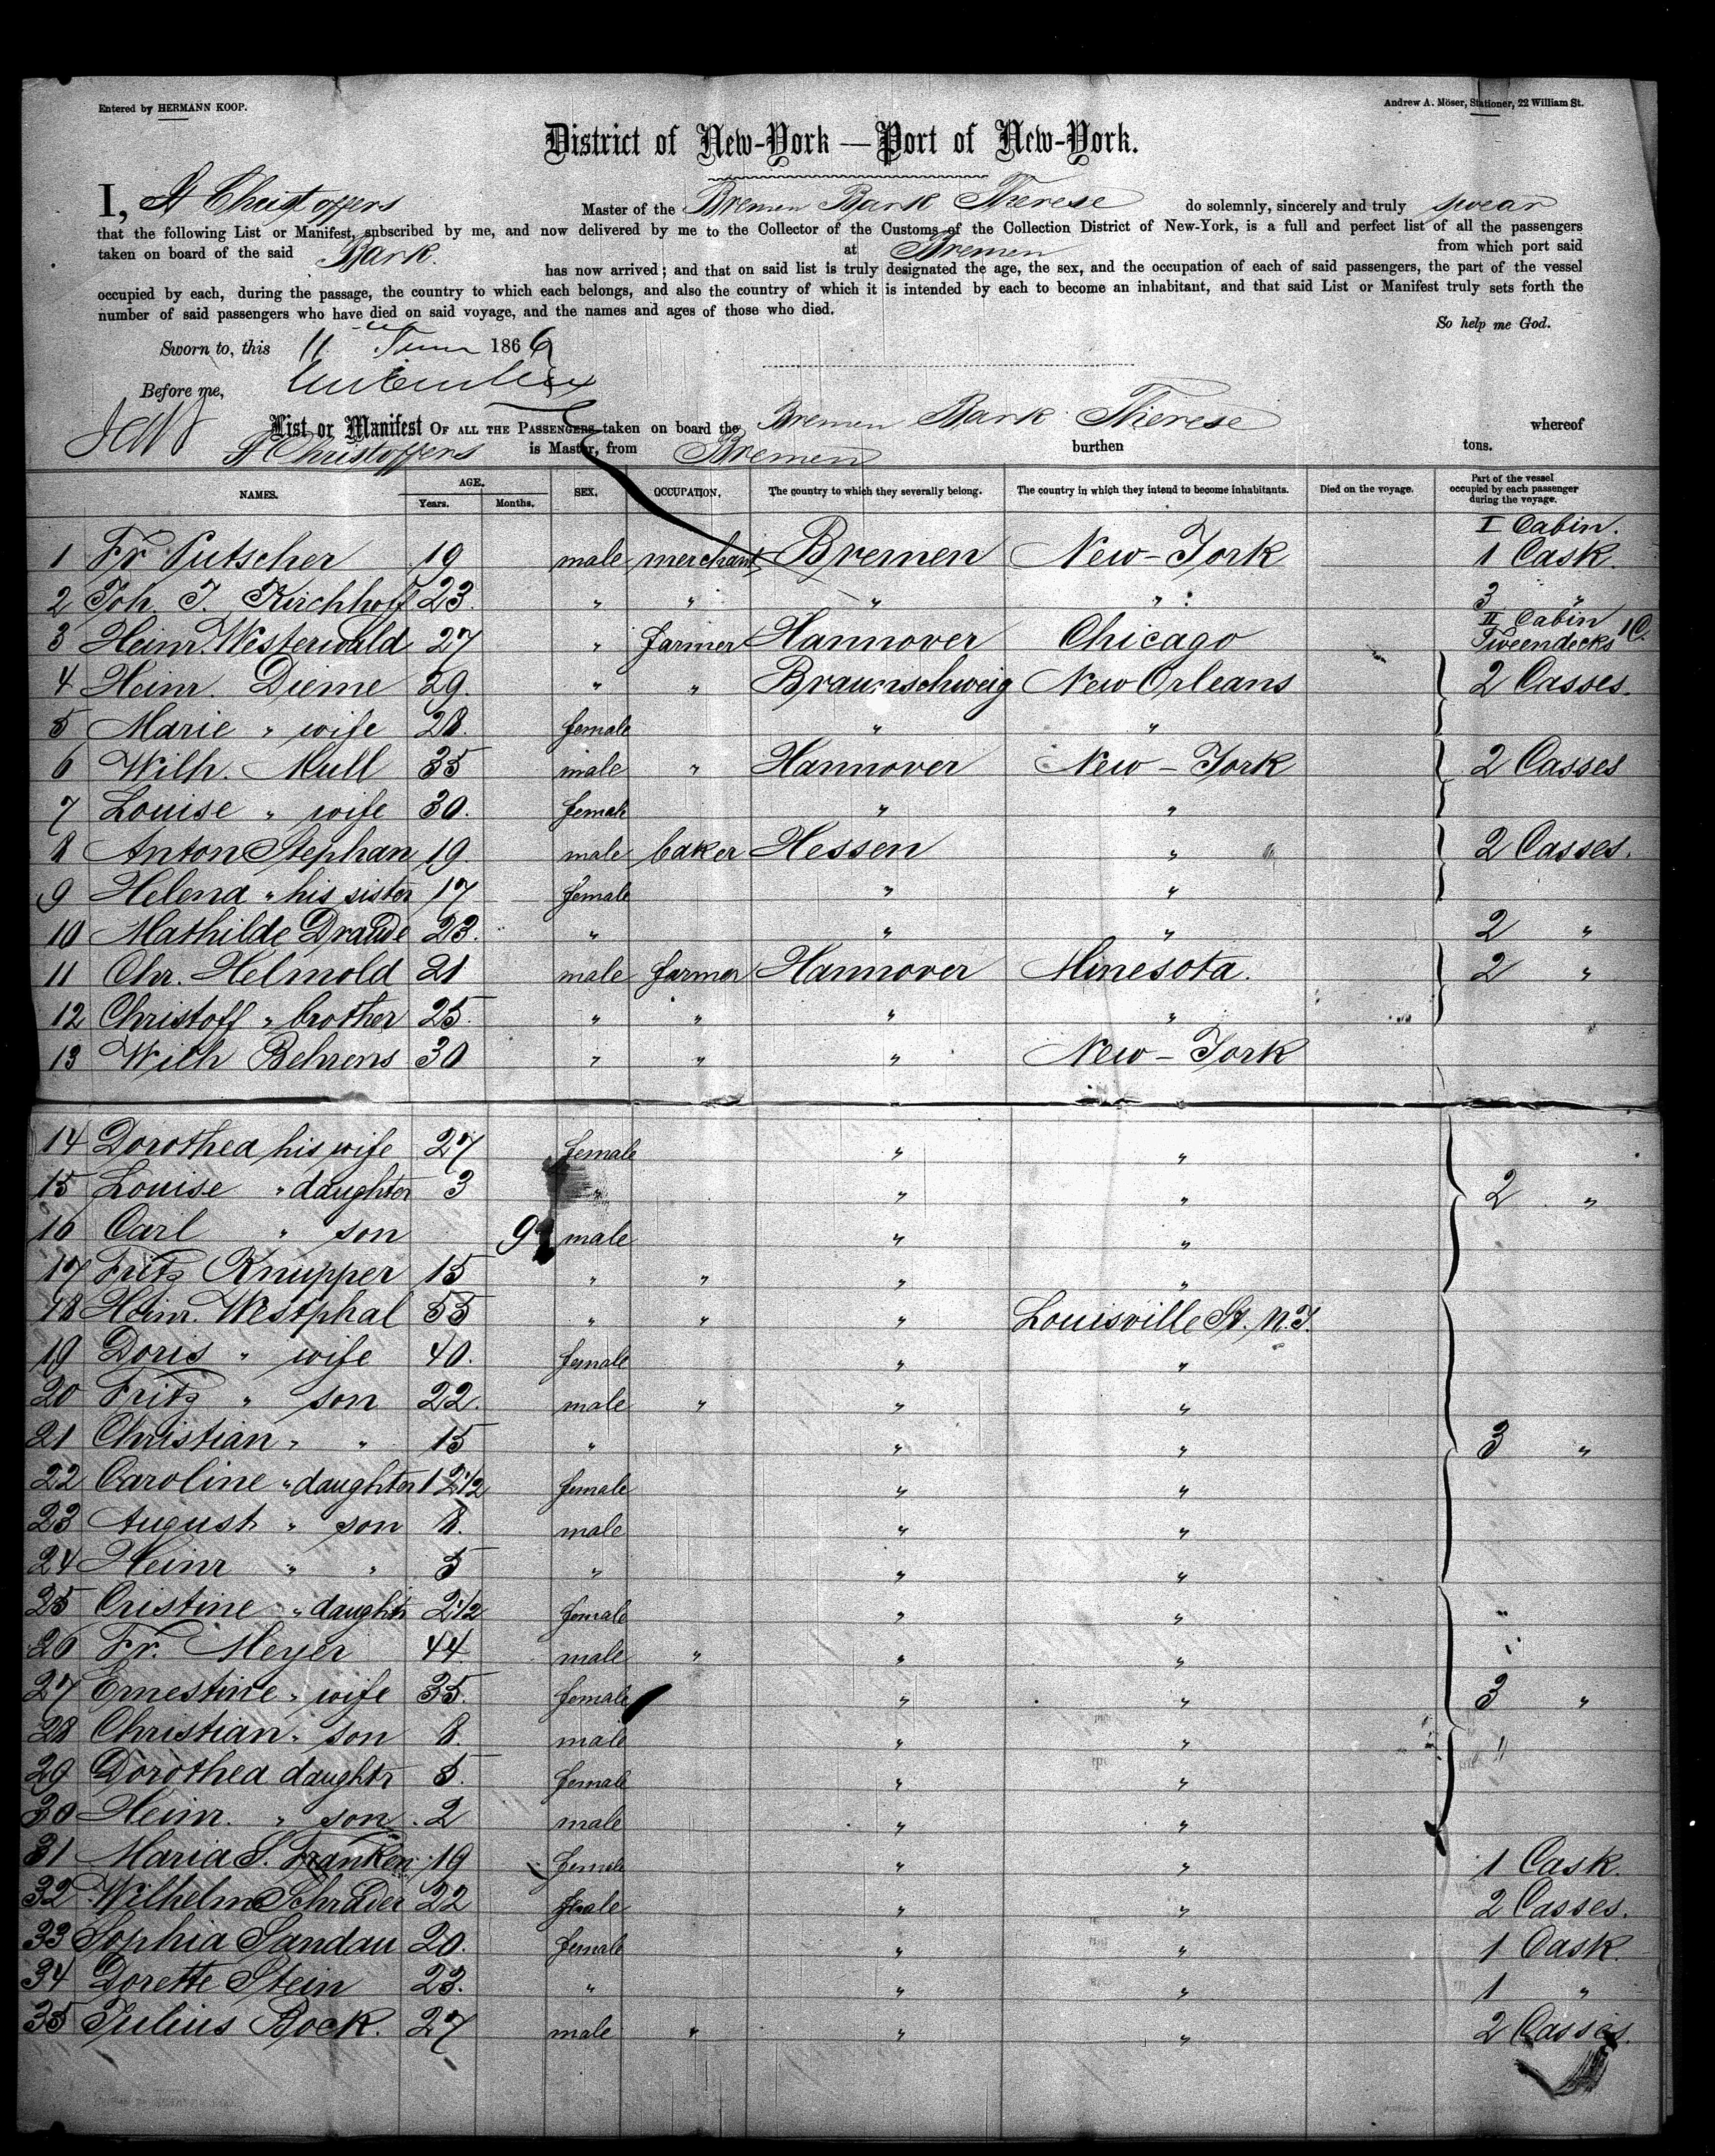 Entered by HERMANN KOOP.
Andrew A. Möser, Stationer, 22 William St.
District of New-York — Port of New-York.
I, H Christoffers Master of the Bremen Bark Therese do solemnly, sincerely and truly swear
that the following List or Manifest, subscribed by me, and now delivered by me to the Collector of the Customs of the Collection District of New-York, is a full and perfect list of all the passengers
taken on board of the said Bark. at Bremen from which port said
has now arrived; and that on said list is truly designated the age, the sex, and the occupation of each of said passengers, the part of the vessel
occupied by each, during the passage, the country to which each belongs, and also the country of which it is intended by each to become an inhabitant, and that said List or Manifest truly sets forth the
number of said passengers who have died on said voyage, and the names and ages of those who died.
So help me God.
Sworn to, this 11 June 1866
Before me,
List or Manifest OF ALL THE PASSENGERS taken on board the Bremen Bark Therese whereof
H Christoffers is Master, from Bremen burthen tons.
NAMES. AGE. Years. Months. SEX. OCCUPATION. The country to which they severally belong. The country in which they intend to become inhabitants. Died on the voyage. Part of the vessel occupied by each passenger during the voyage.
I Cabin.
1 Fr Putscher 19 male merchant Bremen New-York 1 Cask.
2 Joh. J. Kirchhoff 23. " " " " 3 "
II Cabin
3 Heinr. Westerwald 27 " farmer Hannover Chicago Tweendecks 1 C.
4 Heinr. Dieme 29. " " Braunschweig New Orleans 2 Casses.
5 Marie " wife 28. female " "
6 Wilh. Mull 35 male " Hannover New-York 2 Casses
7 Louise " wife 30. female " "
8 Anton Stephan 19. male baker Hessen " 2 Casses.
9 Helena " his sister 17 female " "
10 Mathilde Draude 23. " " " 2 "
11 Chr. Helmold 21 male farmer Hannover Minesota. 2 "
12 Christoff " brother 25. " " " "
13 Wilh Behrens 30 " " " New-York
14 Dorothea his wife 27 female " "
15 Louise " daughter 3 " " " 2 "
16 Carl " son 9 male " "
17 Fritz Knupper 15 " " " "
18 Heinr. Westphal 55 " " " Louisville St. N.Y.
19 Doris " wife 40. female " "
20 Fritz " son 22. male " " "
21 Christian " " 15 " " " 3 "
22 Caroline " daughter 12 1/2 female " "
23 August " son 8. male " "
24 Heinr " " 5 " " "
25 Cristine " daughtr 2 1/2 female " " "
26 Fr. Meyer 44. male " " " "
27 Ernestine " wife 35. female " " 3 "
28 Christian " son 8. male " " "
29 Dorothea daughtr 5. female " "
30 Heinr. " son 2 male " "
31 Maria S. Franken 19 female " " 1 Cask.
32 Wilhelm Schrader 22 male " " 2 Casses.
33 Sophia Sandau 20. female " " 1 Cask
34 Dorette Stein 23. " " " 1 "
35 Julius Bock. 27 male " " " 2 Casses.